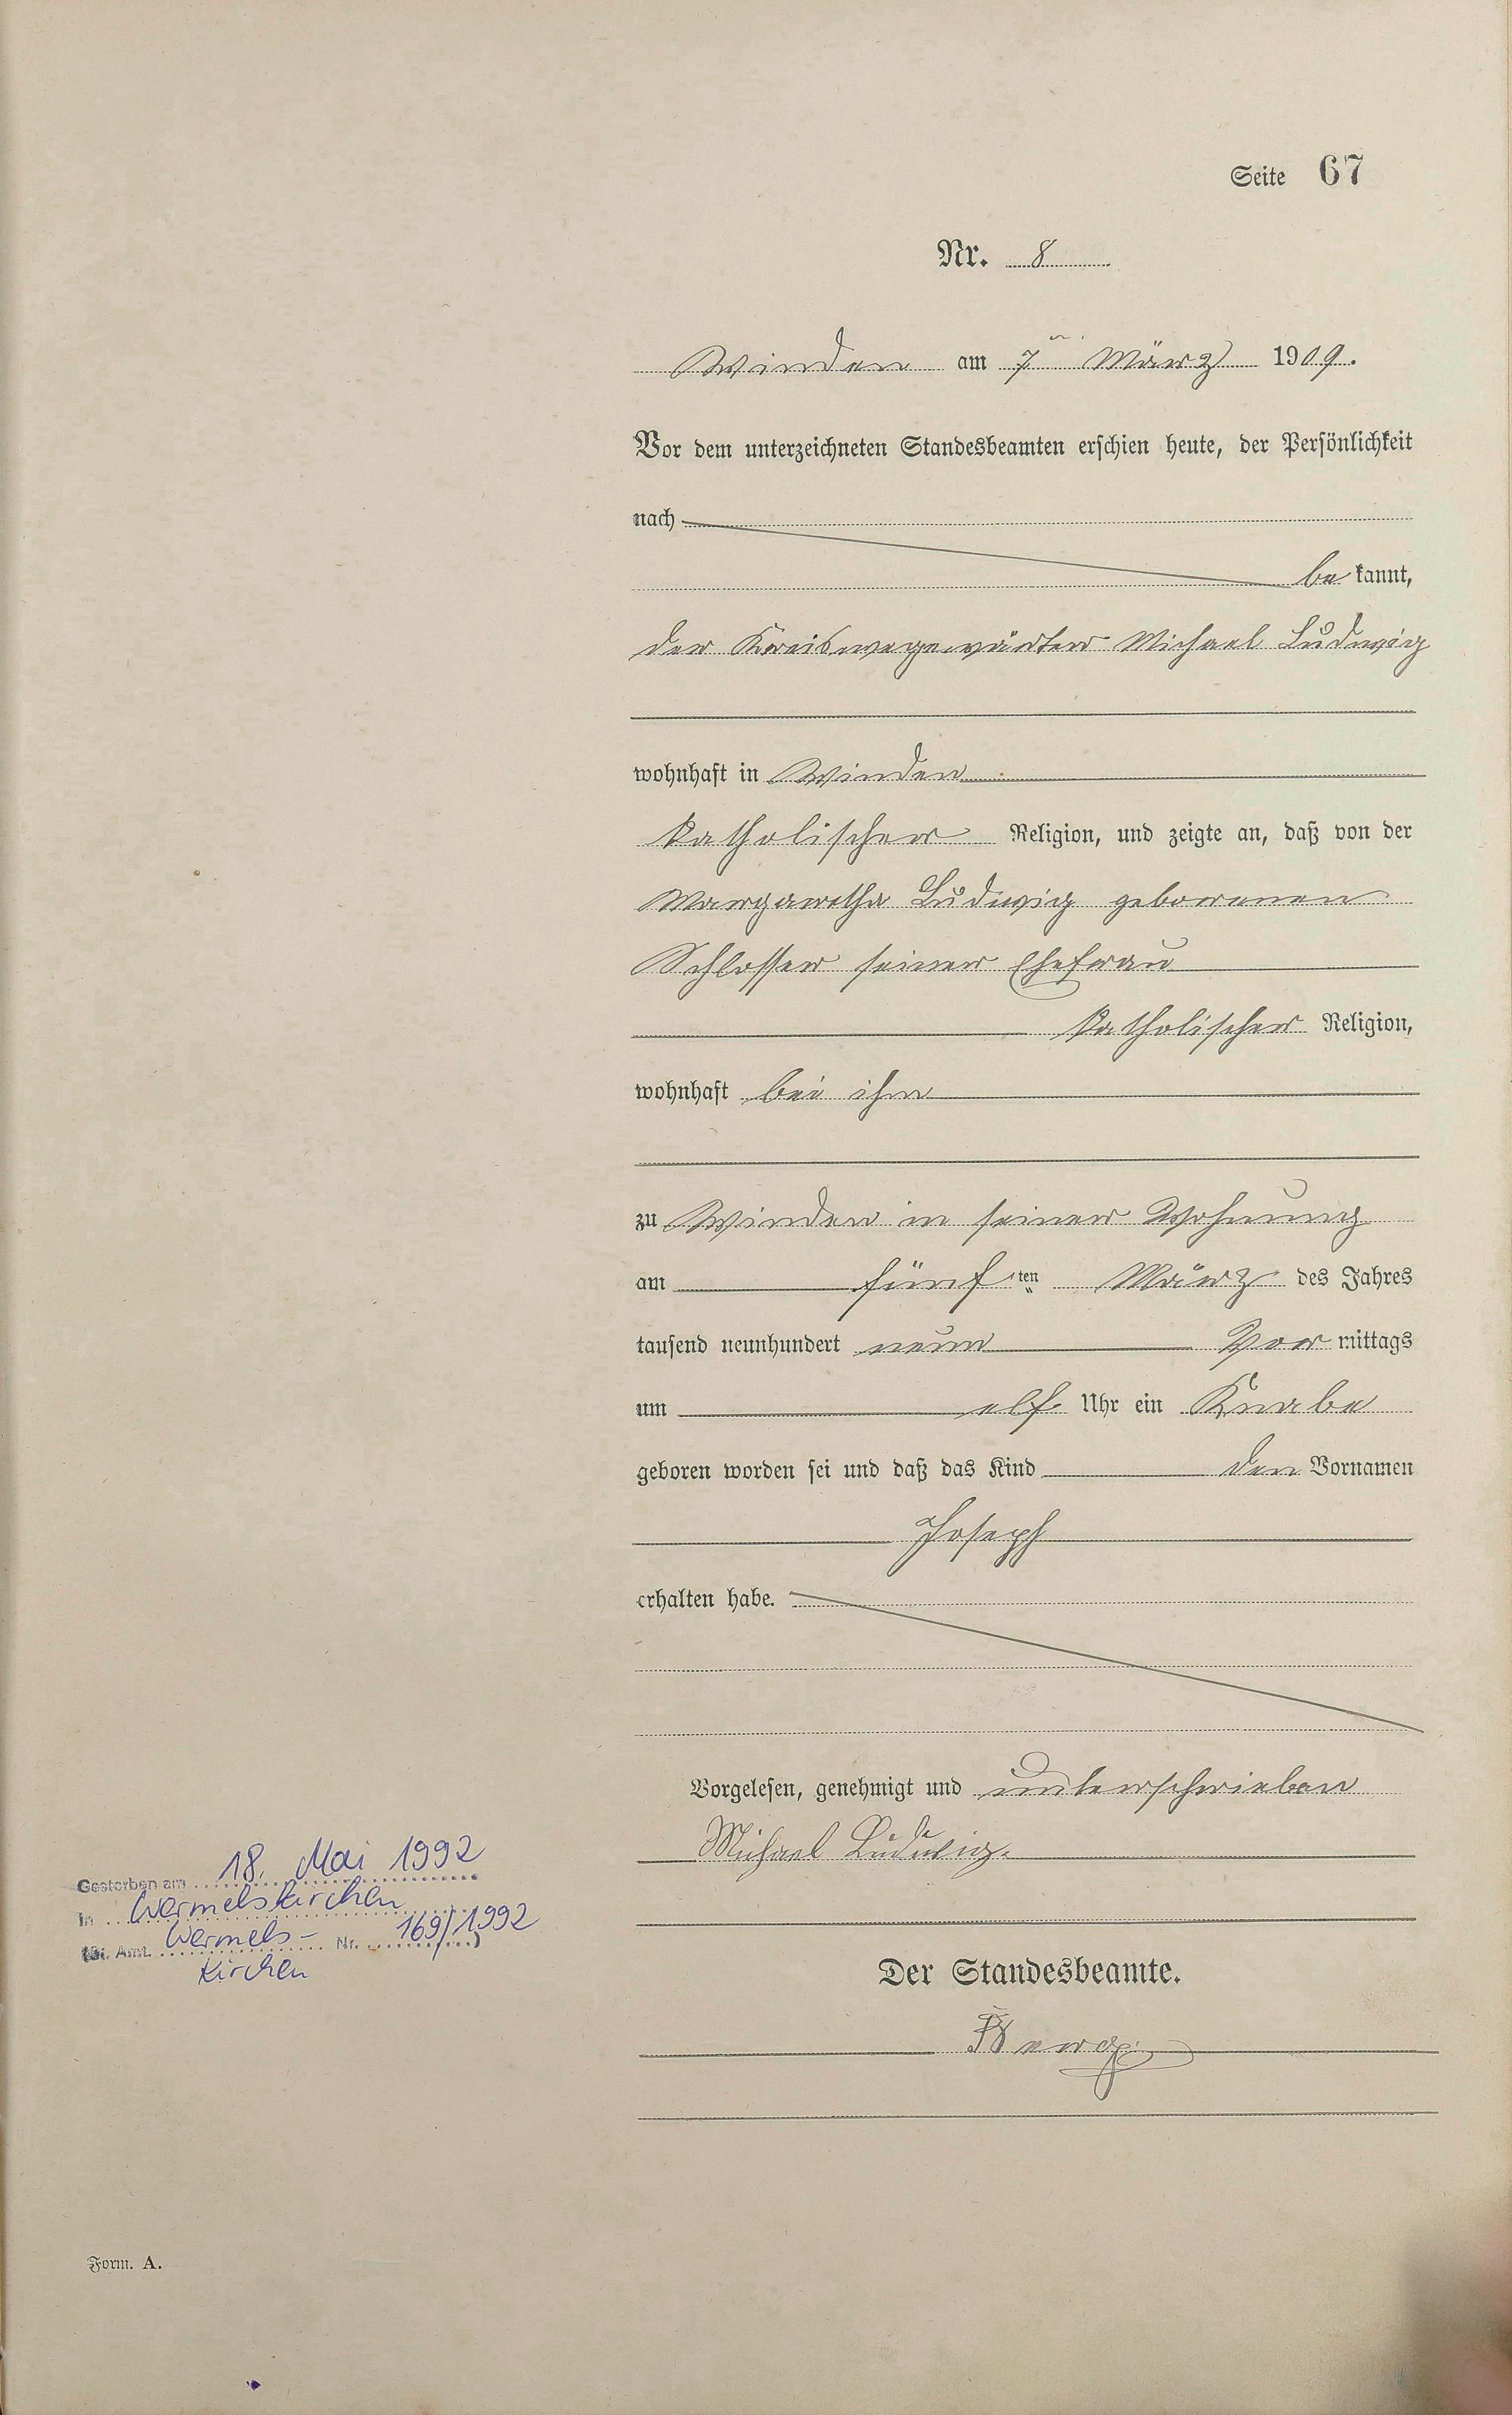 Seite 67
Nr. 8
Winden am 7ten März 1909.
Vor dem unterzeichneten Standesbeamten erschien heute, der Persönlichkeit
nach
be kannt,
der Kreiswegewärter Michael Ludwig
wohnhaft in Winden
katholischer Religion, und zeigte an, daß von der
Margaretha Ludwig geborenen
Schlosser seiner Ehefrau
katholischer Religion,
wohnhaft bei ihm
zu Winden in seiner Wohnung
am fünf ten März des Jahres
tausend neunhundert neun Vor mittags
um elf Uhr ein Knabe
geboren worden sei und daß das Kind den Vornamen
Joseph
erhalten habe.
Vorgelesen, genehmigt und unterschrieben
Michael Ludwig.
Der Standesbeamte.
Berg
Gestorben am 18. Mai 1992
in Wermelskirchen
(St. Amt. Wermels- Nr. 169/1992)
kirchen
Form. A.